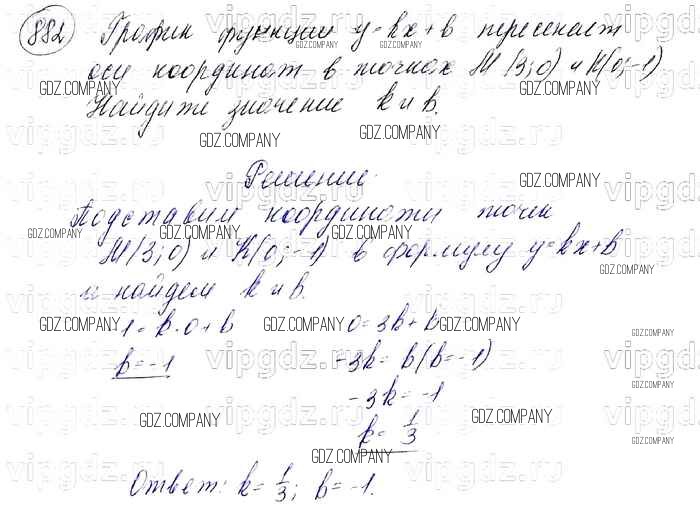 882 График функции y=kx+b пересекает
оси координат в точках M(3;0) и K(0;-1)
Найдите значение k и b.
Решение.
Подставим координаты точек
M(3;0) и K(0;-1) в формулу y=kx+b
и найдем k и b.
-1=k·0+b 0=3k+b
b=-1 -3k=b(b=-1)
-3k=-1
k=1/3
Ответ: k=1/3; b=-1.
GDZ.COMPANY
vipgdz.ru